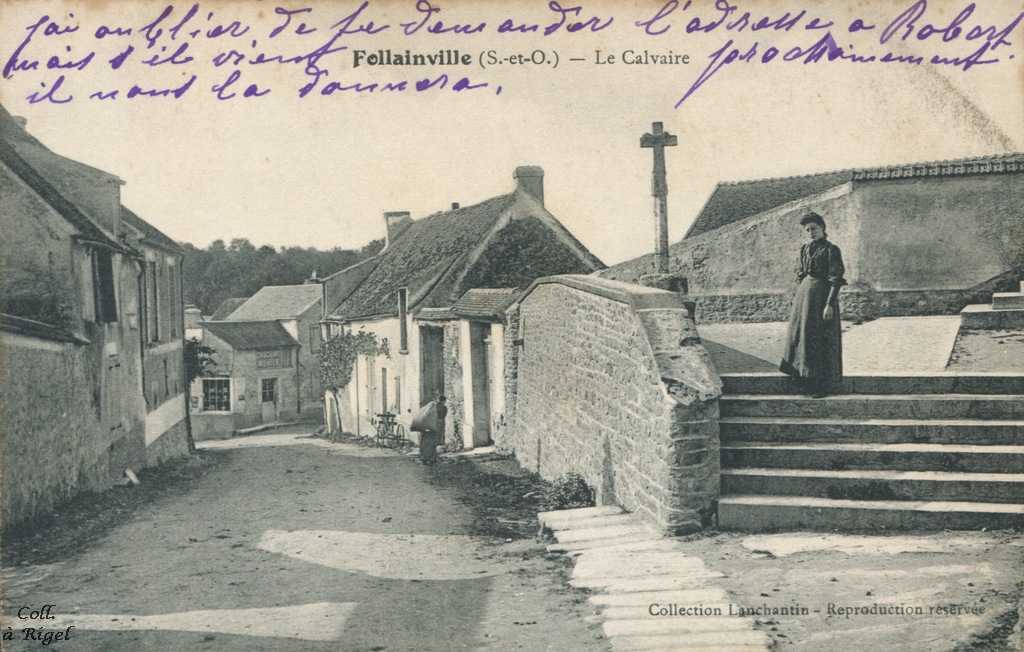 j'ai oublier de te demander l'adresse a Robert
mais s'il vient prochainement
il nous la donnera.
Follainville (S.-et-O.) — Le Calvaire
Collection Lanchantin - Reproduction réservée
Coll.
à Rigel